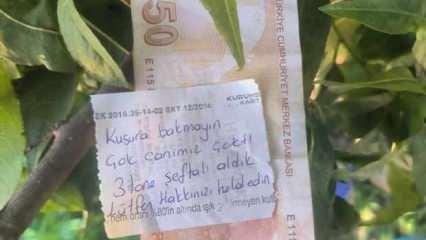 50
E 115
TÜRKİYE CUMHURİYET MERKEZ BANKASI
E 11
EK 2015.35-14-02 SKT 12/2016
KURUM
KART
Kusura bakmayın
Çok canımız çekti
3 tane şeftali aldık
Lütfen Hakkınızı helal edin
nem oranı %80'in altında ışık